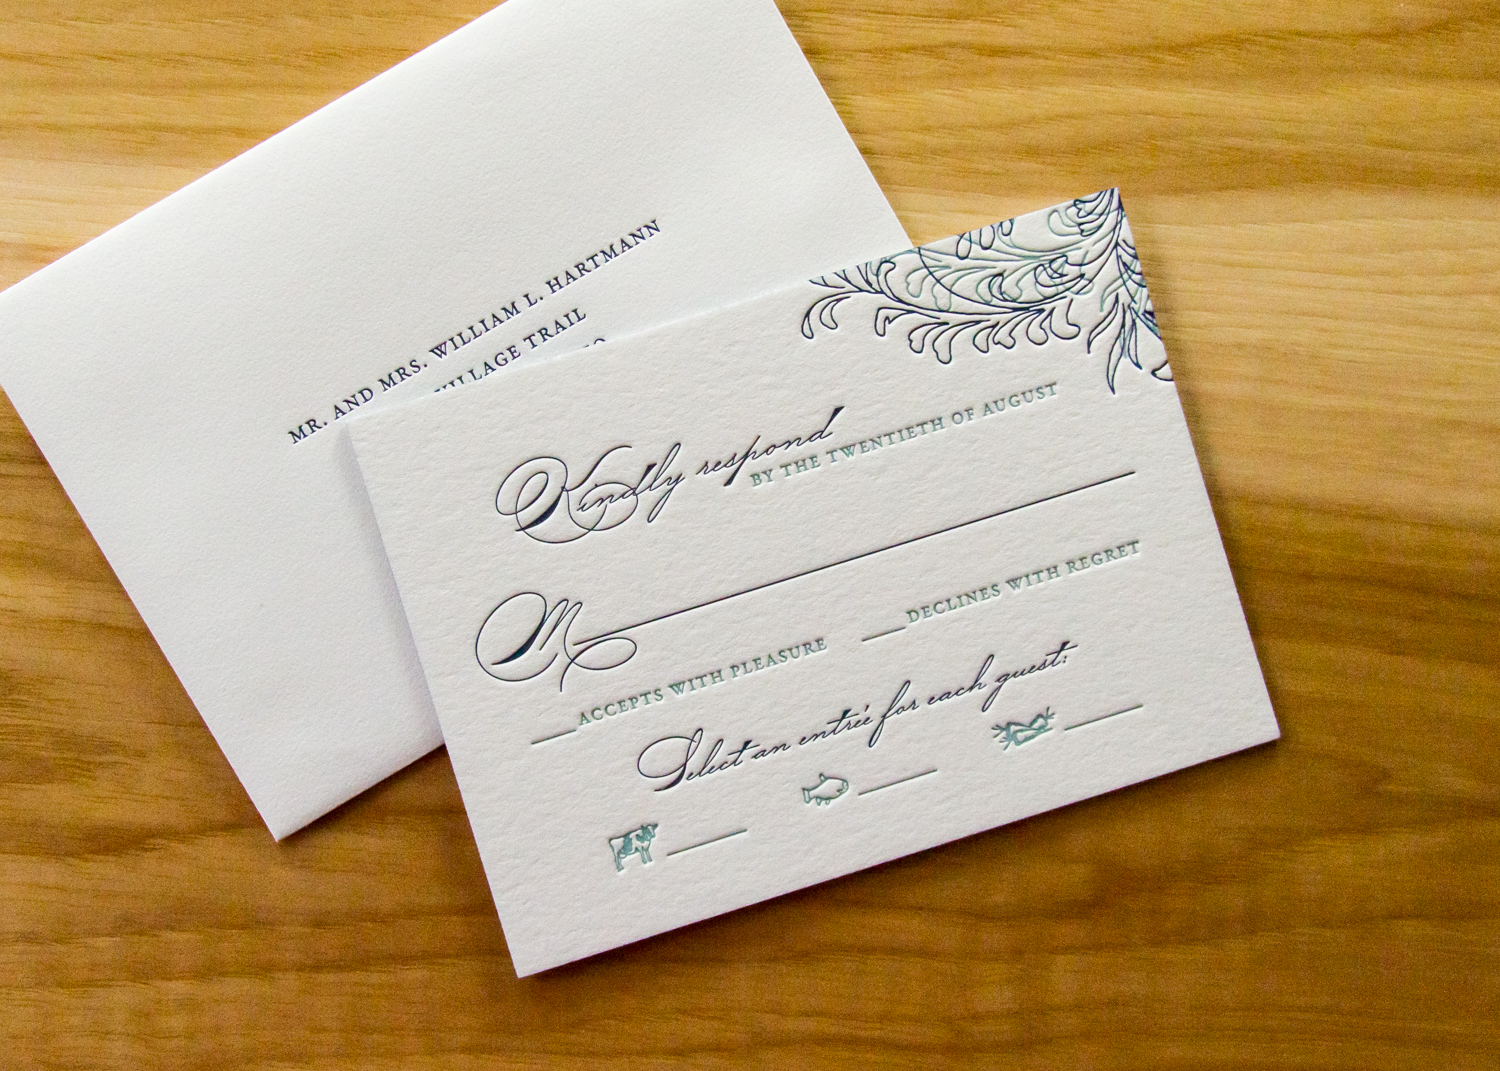 MR. AND MRS. WILLIAM L. HARTMANN
VILLAGE TRAIL
Kindly respond
BY THE TWENTIETH OF AUGUST
M
ACCEPTS WITH PLEASURE
DECLINES WITH REGRET
Select an entrée for each guest: